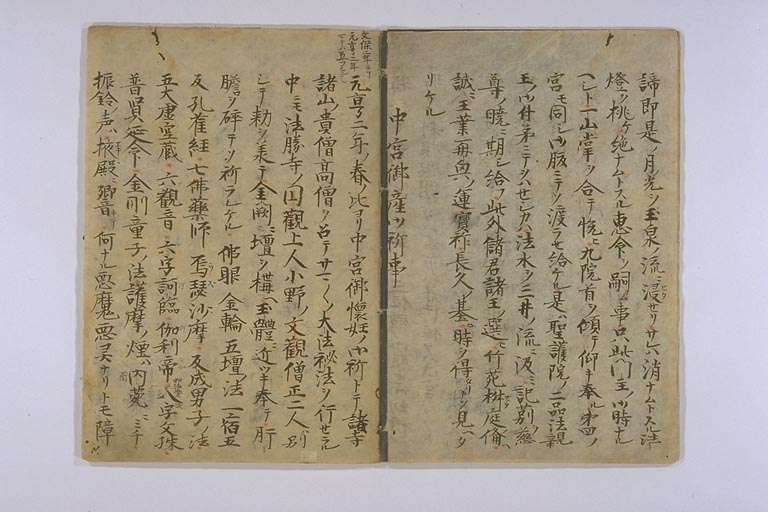 諦即是ノ月光シ玉泉ノ流ニ浸サリサレハ消ナムトスル法
燈ヲ挑ケ絶ナムトスル恵命ヲ嗣ム事只此門主ノ御時ナル
ヘシト一山掌ヲ合テ悦ヒ九院首ヲ傾テ仰キ奉ル第四ノ
宮モ同シ御腹ニテソ渡ラセ給ケル是ハ聖護院ノ二品法親
王ノ御付弟ニテソハセシカハ法水ヲ三井ノ流ニ汲ミ記莂ヲ慈
尊ノ暁ニ期シ給フ此外儲君諸王ノ選ニ竹苑椒庭ノ備ヘ
誠ニ王業再興ノ運寶祚長久ノ基ヒ時ヲ得タリトソ見ヘタ
リケル
中宮御産御祈事
元亨二年ノ春ノ比ヨリ中宮御懐妊ノ御祈トテ諸寺
諸山ノ貴僧髙僧ヲ召テサマ〱ノ大法秘法ヲ行セラル
中ニモ法勝寺ノ円觀上人小野ノ文觀僧正二人ハ別
シテ勅シ承テ金闕ニ壇ヲ構ヘ玉體ニ近ツキ奉テ肝
膽ヲ砕テソ祈ラレケル 佛眼 金輪 五壇ノ法 一宿五
反孔雀経 七佛藥師 烏瑟沙摩 反成男子ノ法
五大虚空蔵 六觀音 六字訶臨 伽利帝 八字文殊
普賢延命 金剛童子ノ法護摩ノ煙ハ内苑ニミチ
振鈴ノ声ハ掖殿ニ郷音テ何ナル悪魔悪灵ナリトモ障